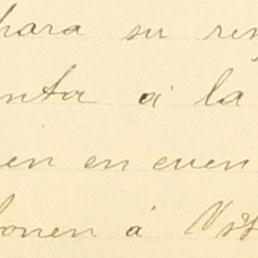 hara su res
nta á la
en en cuen
onen á V